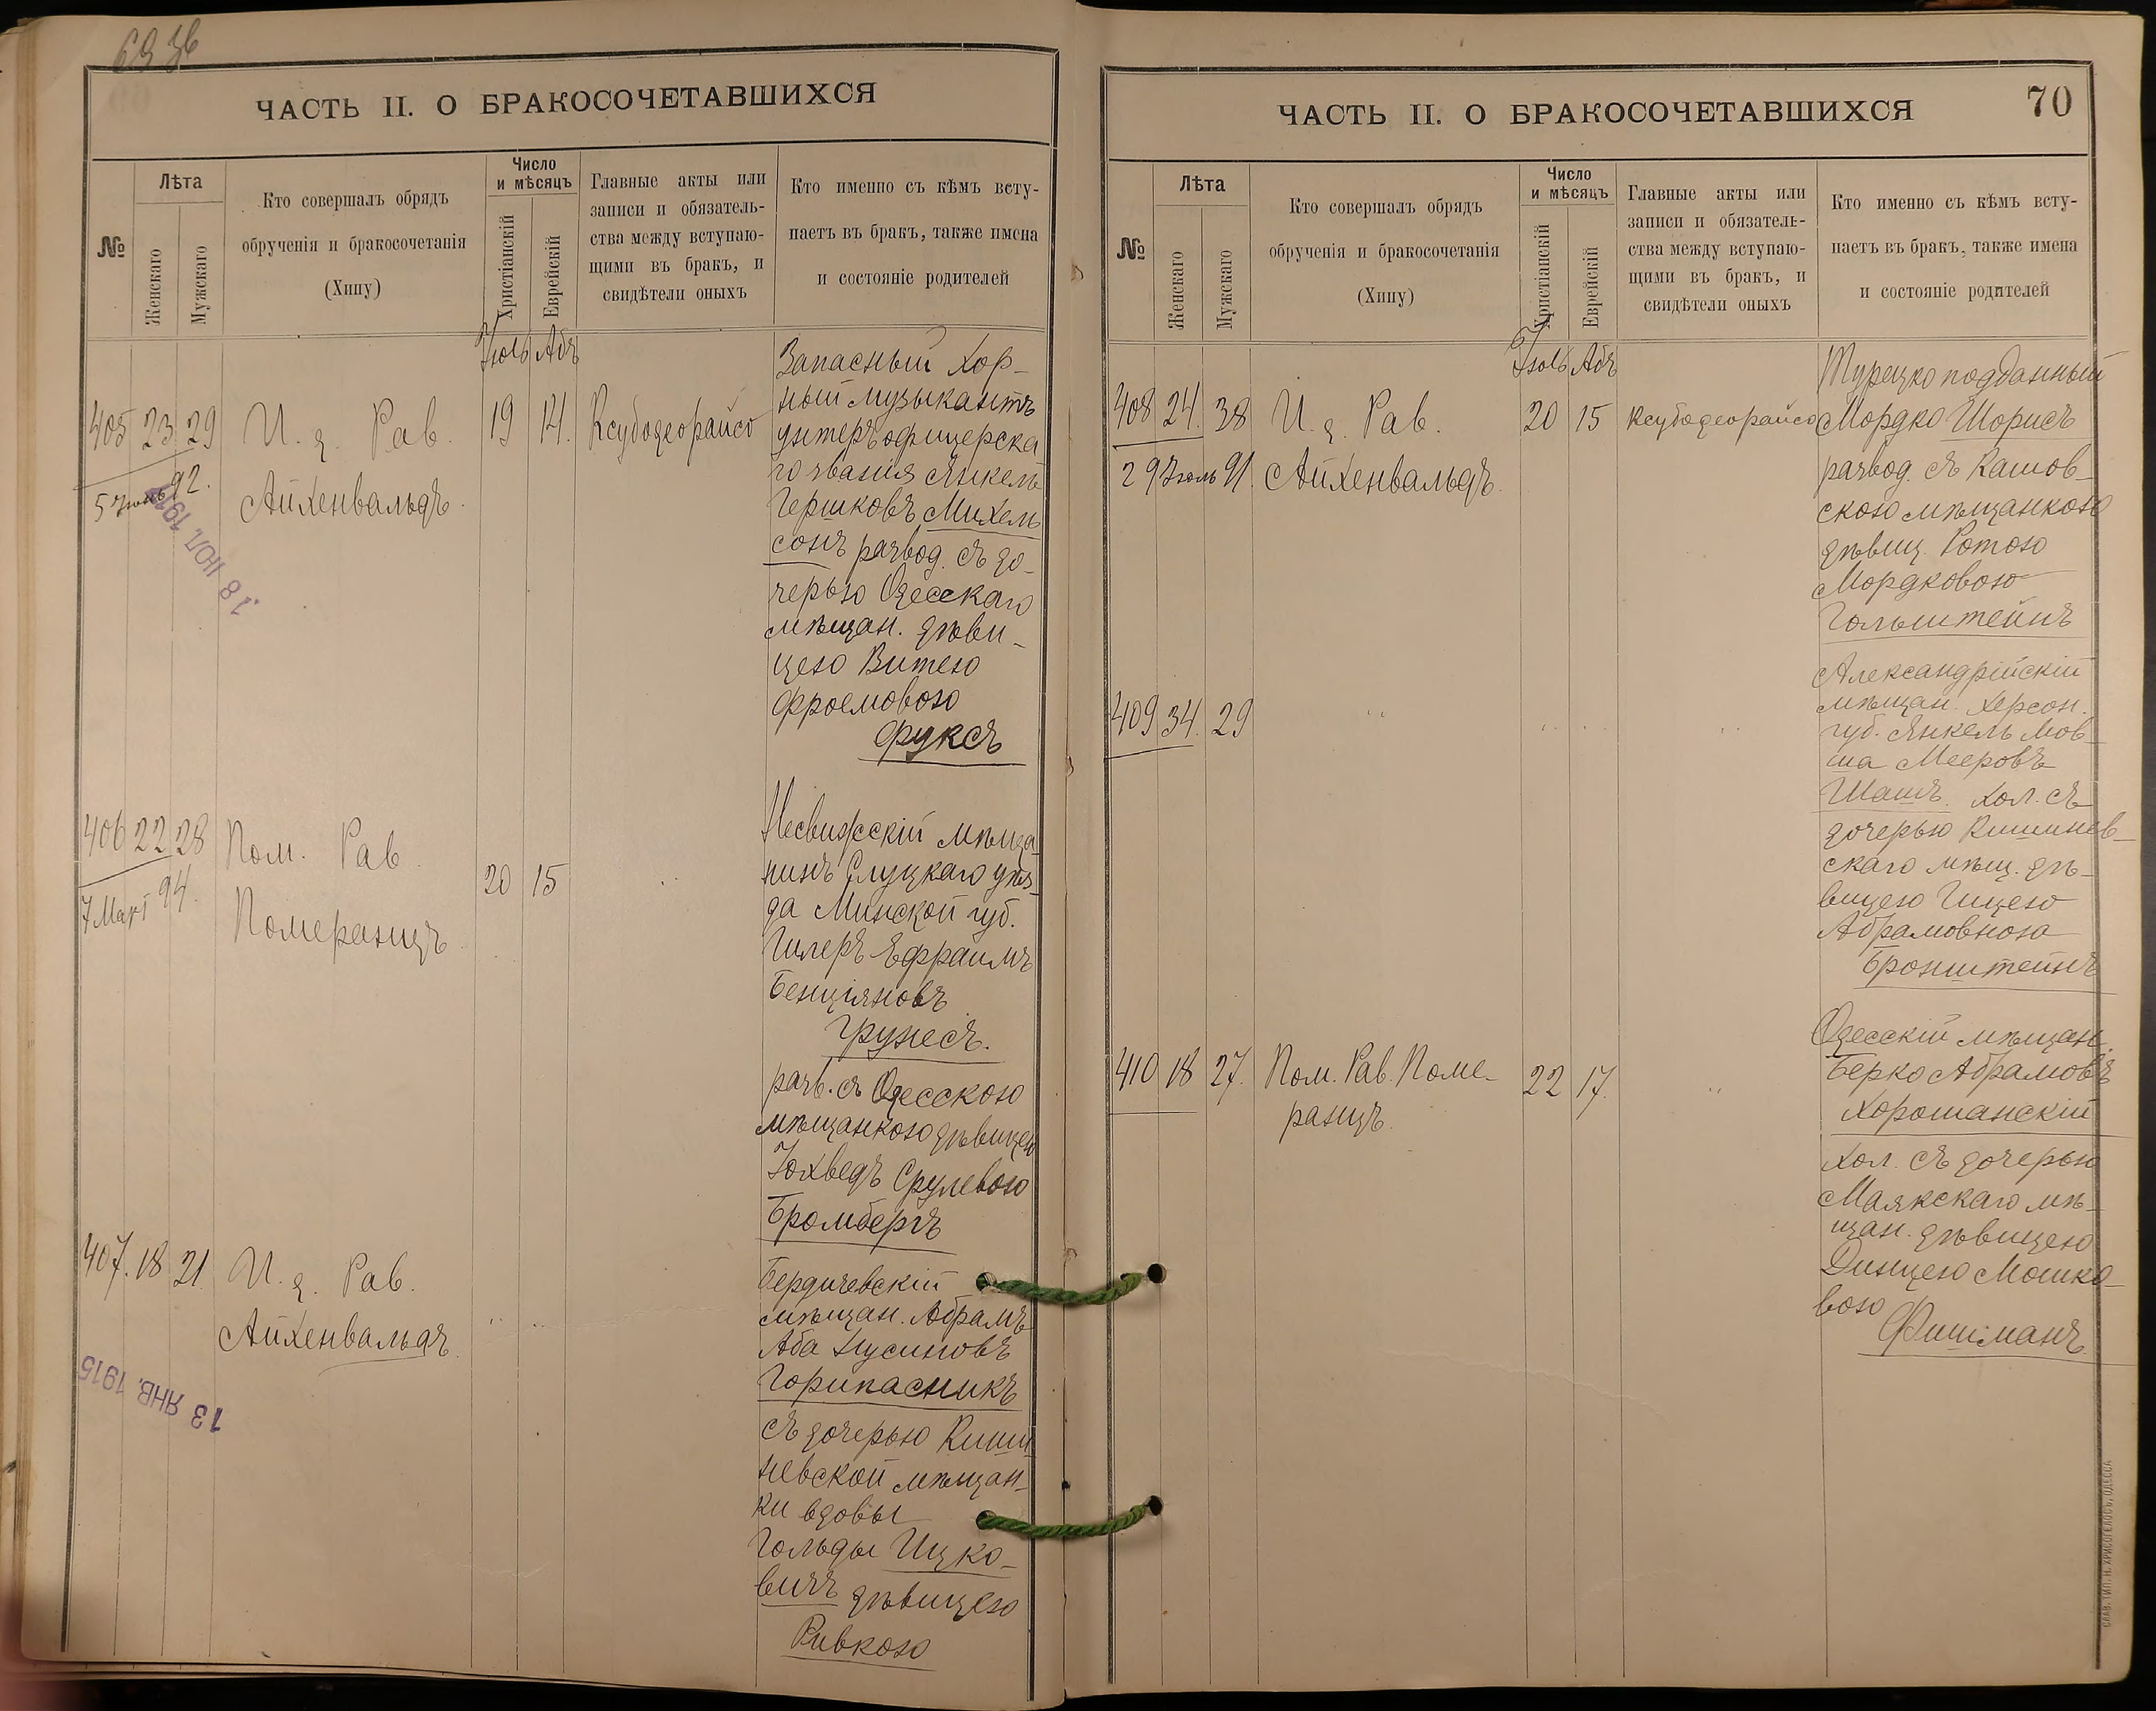 ЧАСТЬ II. О БРАКОСОЧЕТАВШИХСЯ
№
Лѣта
Женскаго
Мужскаго
Кто совершалъ обрядъ
обрученія и бракосочетанія
(Хипу)
Число
и мѣсяцъ
Христіанскій
Еврейскій
Главные акты или
записи и обязатель-
ства между вступаю-
щими въ бракъ, и
свидѣтели оныхъ
Кто именно съ кѣмъ всту-
паетъ въ бракъ, также имена
и состояніе родителей
Іюль Абъ
405 23 29 И. д. Рав. 19 14. Ксубодеорайсо
5 Іюнь 92.
Айхенвальдъ.
18 ІЮЛ. 191
Запасный хор-
ный музыкантъ
унтеръ офицерска
го званія Янкель
Гершковъ Михель
сонъ развод. съ до-
черью Одесскаго
мѣщан. дѣви-
цею Витею
Фроемовою
Фуксъ
406 22 28 Пом. Рав. 20 15
7 Март 94.
Померанцъ
Несвижскій мѣща
нинъ Слуцкаго уѣз-
да Минской губ.
Гилеръ Ефраимъ
Бенціяновъ
Грунесъ.
разв. съ Одесскою
мѣщанкою дѣвицею
Іохведъ Срулевою
Бромбергъ
407. 18 21 И. д. Рав.
Айхенвальдъ
13 ЯНВ. 1915
Бердичевскій
мѣщан. Абрамъ
Аба Нусиновъ
Горипасникъ
съ дочерью Киши
невской мѣщан-
ки вдовы
Гольды Ицко-
вичъ дѣвицею
Ривкою
ЧАСТЬ II. О БРАКОСОЧЕТАВШИХСЯ
70
№
Лѣта
Женскаго
Мужскаго
Кто совершалъ обрядъ
обрученія и бракосочетанія
(Хипу)
Число
и мѣсяцъ
Христіанскій
Еврейскій
Главные акты или
записи и обязатель-
ства между вступаю-
щими въ бракъ, и
свидѣтели оныхъ
Кто именно съ кѣмъ всту-
паетъ въ бракъ, также имена
и состояніе родителей
Іюль Абъ
408 24. 38 И. д. Рав. 20 15 Ксубодеорайсо
29 Іюль 91. Айхенвальдъ.
Турецко подданный
Мордко Шорисъ
развод. съ Кашов-
скою мѣщанкою
дѣвиц. Ротою
Мордковою
Гольштейнъ
409 34. 29 " " " "
Александрійскій
мѣщан. Херсон.
губ. Янкель Мов-
ша Мееровъ
Шашъ. хол. съ
дочерью Кишинев-
скаго мѣщ. дѣ-
вицею Гицею
Абрамовною
Бронштейнъ
410 18 27. Пом. Рав. Поме- 22 17. "
ранцъ.
Одесскій мѣщан.
Берко Абрамовъ
Хорошанскій
хол. съ дочерью
Маякскаго мѣ-
щан. дѣвицею
Динцею Мошко-
вою
Фишманъ.
СЛАВ. ТИП. Н. ХРИСОГЕЛОСЪ, ОДЕССА